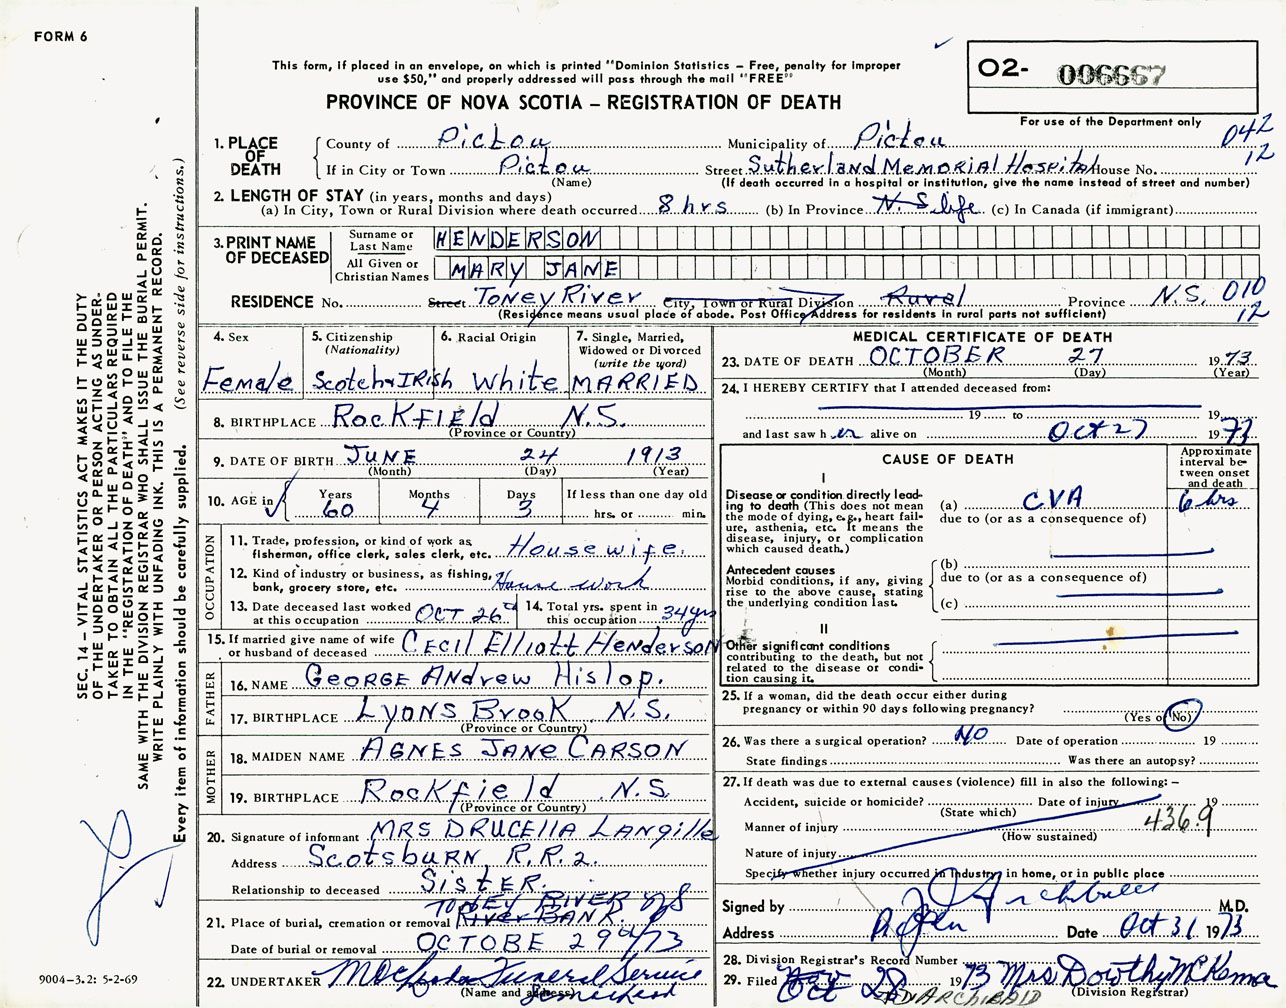 FORM 6
This form, if placed in an envelope, on which is printed "Dominion Statistics – Free, penalty for improper
use $50," and properly addressed will pass through the mail "FREE"
PROVINCE OF NOVA SCOTIA – REGISTRATION OF DEATH
O2- 006667
For use of the Department only
042
12
1. PLACE OF DEATH
County of Pictou Municipality of Pictou
If in City or Town Pictou Street Sutherland Memorial Hospital House No.
(Name) (If death occurred in a hospital or institution, give the name instead of street and number)
2. LENGTH OF STAY (in years, months and days)
(a) In City, Town or Rural Division where death occurred 8 hrs (b) In Province N.S life (c) In Canada (if immigrant)
3. PRINT NAME OF DECEASED
Surname or Last Name HENDERSON
All Given or Christian Names MARY JANE
RESIDENCE No. Street Toney River City, Town or Rural Division Rural Province N.S. 010
12
(Residence means usual place of abode. Post Office Address for residents in rural parts not sufficient)
4. Sex Female
5. Citizenship (Nationality) Scotch & IRISh
6. Racial Origin White
7. Single, Married, Widowed or Divorced (write the word) MARRIED
8. BIRTHPLACE Rockfield N.S.
(Province or Country)
9. DATE OF BIRTH JUNE 24 1913
(Month) (Day) (Year)
10. AGE in Years 60 Months 4 Days 3 If less than one day old
hrs. or min.
OCCUPATION
11. Trade, profession, or kind of work as, fisherman, office clerk, sales clerk, etc. Housewife.
12. Kind of industry or business, as fishing, bank, grocery store, etc. House work
13. Date deceased last worked at this occupation OCT 26th
14. Total yrs. spent in this occupation 34 yrs
15. If married give name of wife or husband of deceased Cecil Elliott Henderson
FATHER
16. NAME George Andrew Hislop.
17. BIRTHPLACE Lyons Brook N.S.
(Province or Country)
MOTHER
18. MAIDEN NAME AGNES JANE CARSON
19. BIRTHPLACE Rockfield N.S
(Province or Country)
20. Signature of informant MRS DRUCEllA LANgille
Address Scotsburn R.R.2.
Relationship to deceased SisTER.
TONEY RIVER NS
21. Place of burial, cremation or removal River BANK.
Date of burial or removal OCTOBE 29th/73
22. UNDERTAKER Funeral Service
(Name and address)
MEDICAL CERTIFICATE OF DEATH
23. DATE OF DEATH OCTOBER 27 1973
(Month) (Day) (Year)
24. I HEREBY CERTIFY that I attended deceased from:
19 to 19
and last saw her alive on Oct 27 1973
CAUSE OF DEATH
Approximate interval between onset and death
I
Disease or condition directly leading to death (This does not mean the mode of dying, e.g., heart failure, asthenia, etc. It means the disease, injury, or complication which caused death.)
(a) CVA 6 hrs
due to (or as a consequence of)
Antecedent causes
Morbid conditions, if any, giving rise to the above cause, stating the underlying condition last.
(b)
due to (or as a consequence of)
(c)
II
Other significant conditions
contributing to the death, but not related to the disease or condition causing it.
25. If a woman, did the death occur either during pregnancy or within 90 days following pregnancy?
(Yes or No)
26. Was there a surgical operation? NO Date of operation 19
State findings Was there an autopsy?
27. If death was due to external causes (violence) fill in also the following: –
Accident, suicide or homicide? Date of injury 19
(State which)
Manner of injury 436.9
(How sustained)
Nature of injury
Specify whether injury occurred in Industry, in home, or in public place
Signed by M.D.
Address Date Oct 31 1973
28. Division Registrar's Record Number
29. Filed Oct 28 1973 Mrs Dorothy McKenna
(Division Registrar)
SEC. 14 – VITAL STATISTICS ACT MAKES IT THE DUTY
OF THE UNDERTAKER OR PERSON ACTING AS UNDER-
TAKER TO OBTAIN ALL THE PARTICULARS REQUIRED
IN THE "REGISTRATION OF DEATH" AND TO FILE THE
SAME WITH THE DIVISION REGISTRAR WHO SHALL ISSUE THE BURIAL PERMIT.
WRITE PLAINLY WITH UNFADING INK. THIS IS A PERMANENT RECORD.
Every item of information should be carefully supplied. (See reverse side for instructions.)
9004–3.2: 5-2-69